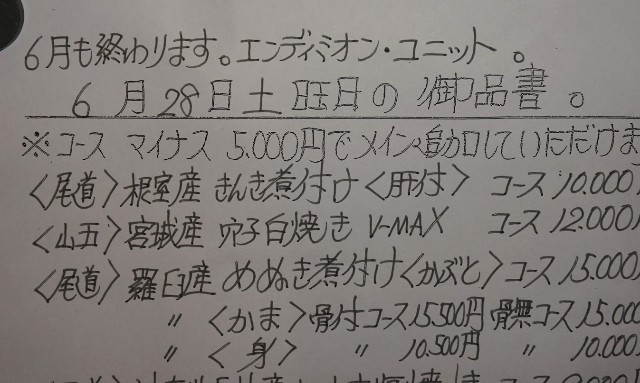 6月も終わります。エンディミオン・ユニット。
6月28日土曜日の御品書。
※コース マイナス 5.000円でメインへ追加していただけま
〈尾道〉根室産 きんき煮付け〈肝付〉 コース 10.000
〈山五〉宮城産 穴子白焼き V-MAX コース 12.000
〈尾道〉羅臼産 めぬき煮付け〈かぶと〉コース 15.000
〃 〈かま〉骨付コース15.500円 骨無コース 15.000
〃 〈身〉 〃 10.500円 〃 10.000